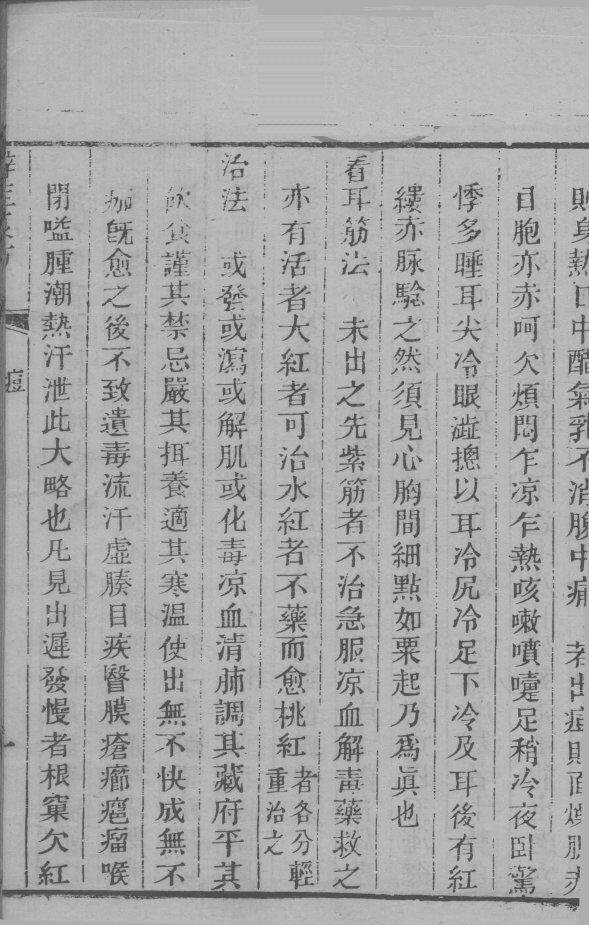 則身熱口中醋氣乳不消腹中痛　若出痘則面燥腮赤
目胞亦赤呵欠煩悶乍凉乍熱咳嗽噴嚔足稍冷夜臥驚
悸多睡耳尖冷眼澁摠以耳冷尻冷足下冷及耳後有紅
縷赤脉驗之然須見心胸間細點如粟起乃爲眞也
看耳筋法　未出之先紫筋者不治急服凉血解毒藥救之
亦有活者大紅者可治水紅者不藥而愈桃紅者各分輕重治之
治法　或發或瀉或解肌或化毒凉血清肺調其藏府平其
飲食謹其禁忌嚴其挕養適其寒温使出無不快成無不
痂旣愈之後不致遺毒流汗虛腠目疾瞖膜瘡癤瘤喉
閉嗌腫潮熱汗泄此大略也凡見出遲發慢者根窠欠紅
痘